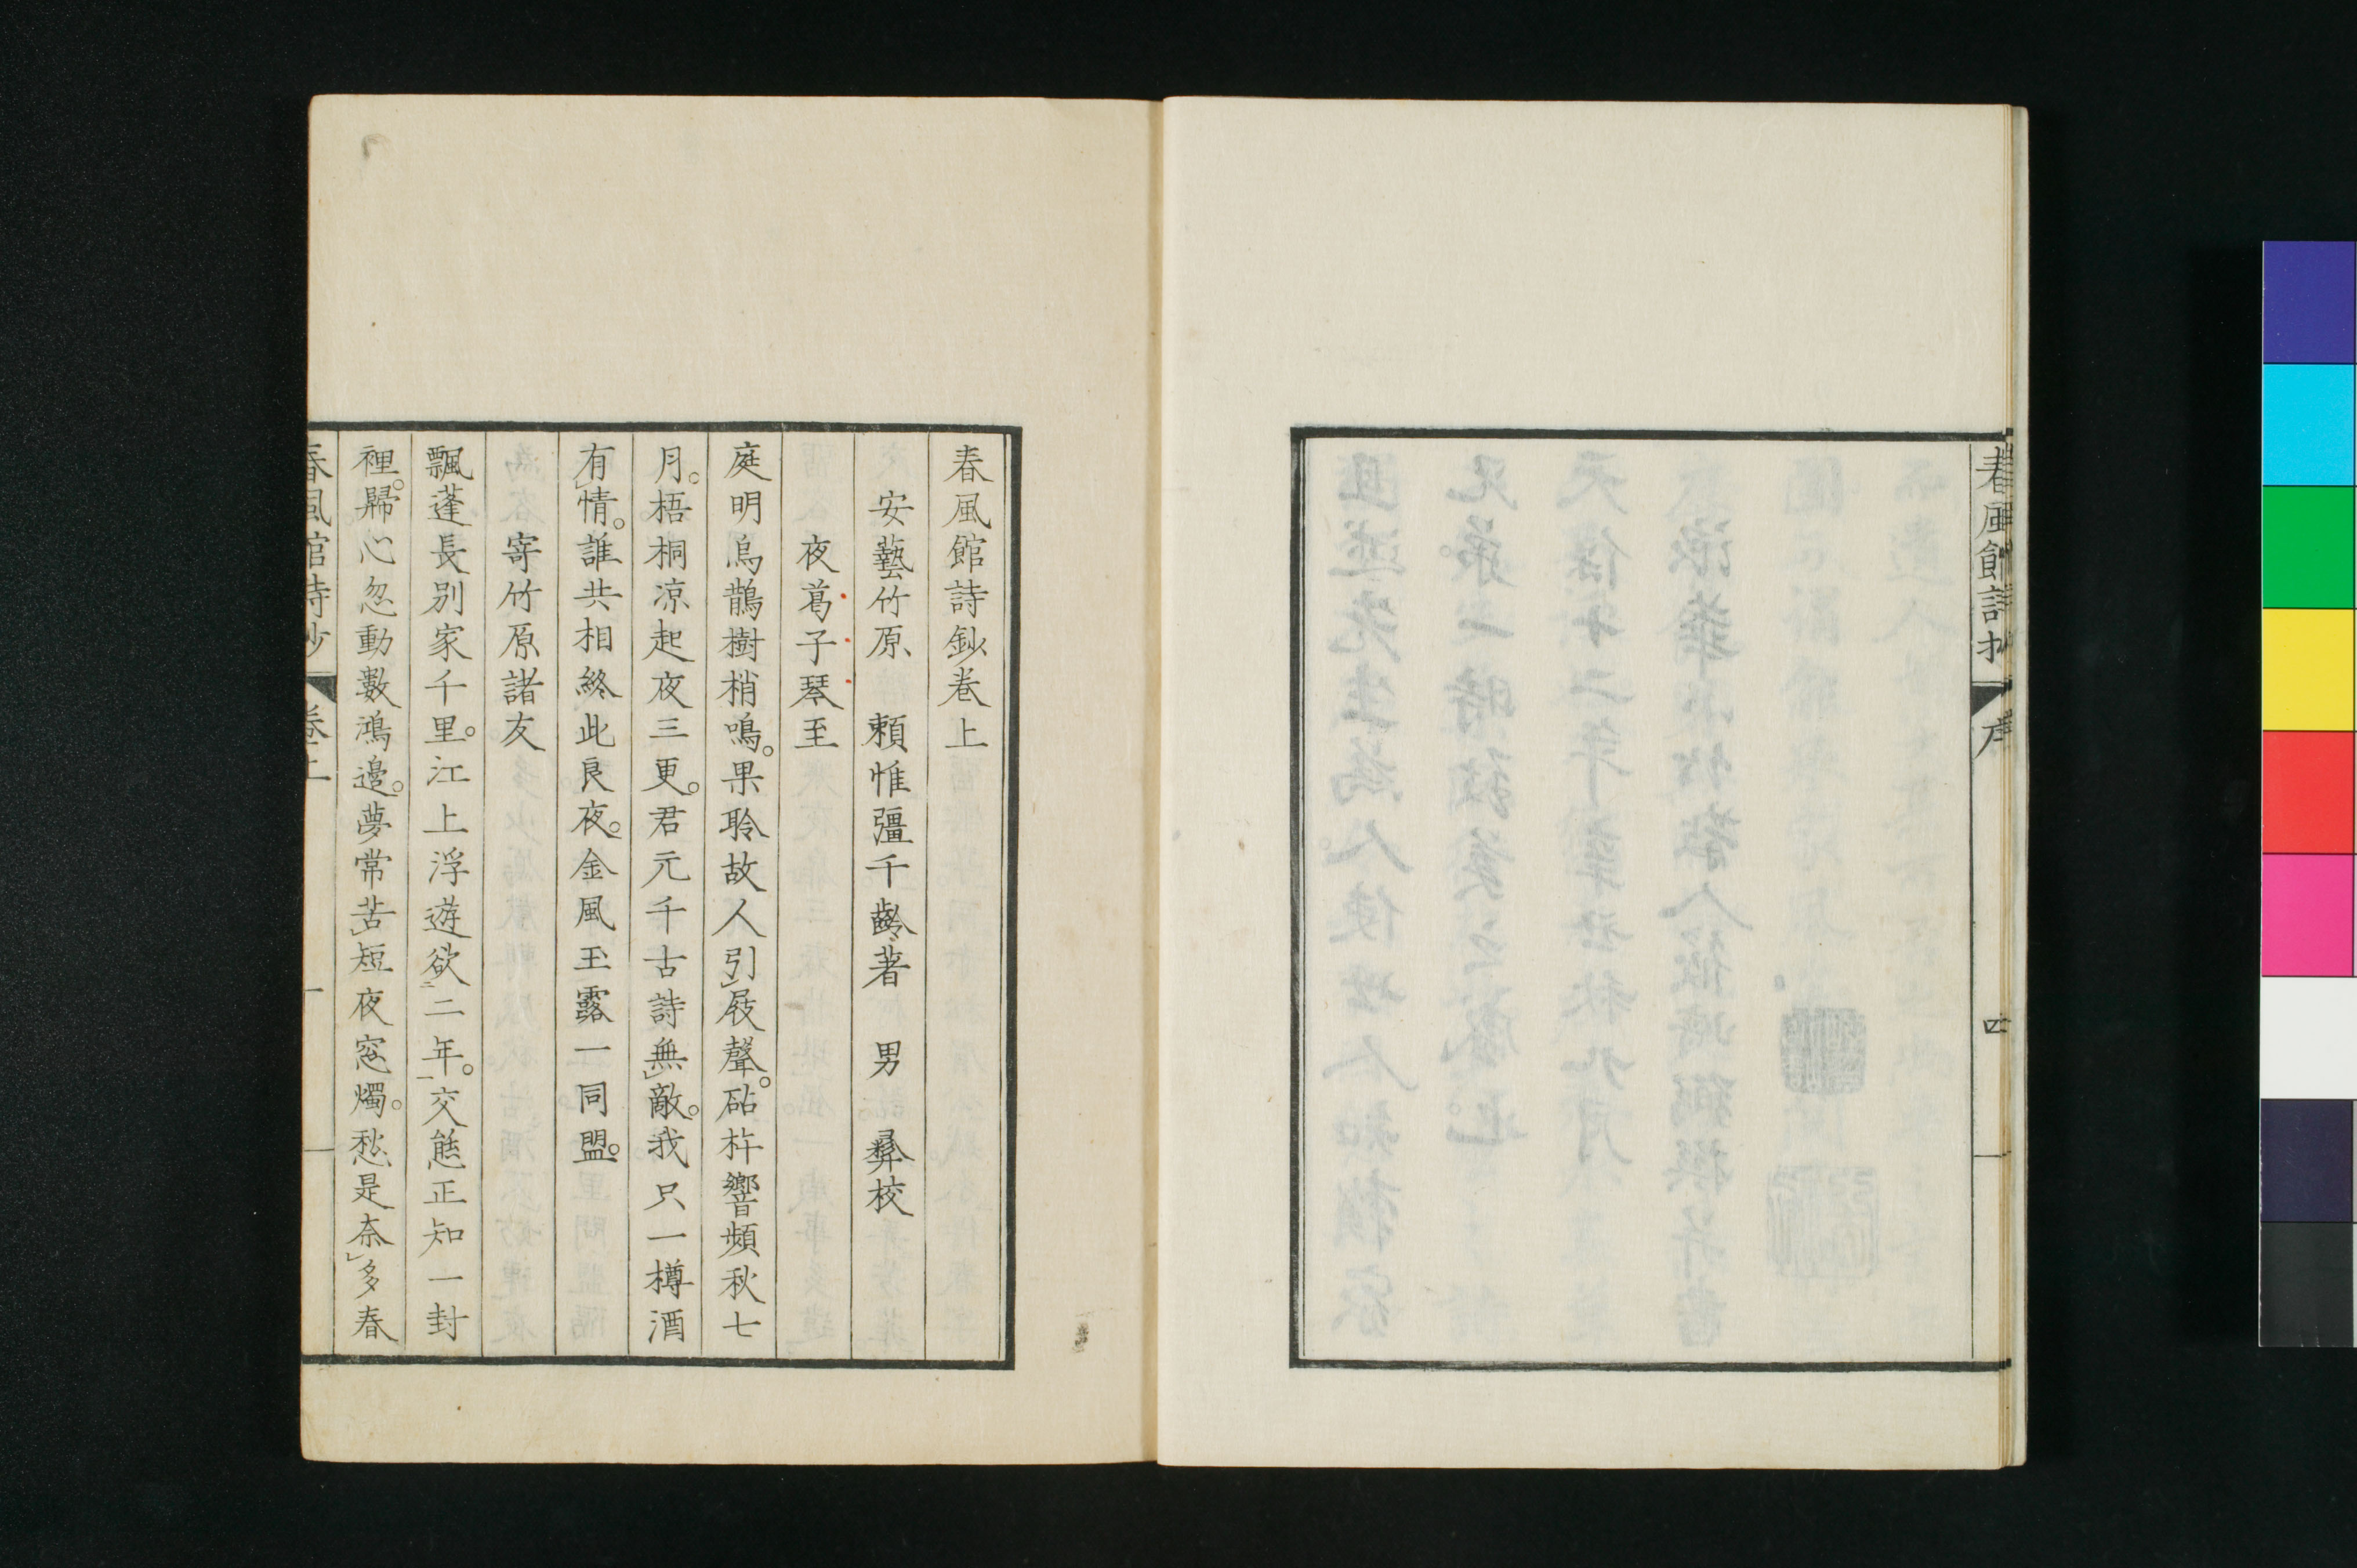 春風館詩抄
序
四
春風館詩鈔卷上
安藝竹原　賴惟彊千齡著　男　彝校
夜葛子琴至
庭明烏鵲樹梢鳴。果聆故人引屐聲。砧杵響頻秋七
月。梧桐涼起夜三更。君元千古詩無敵。我只一樽酒
有情。誰共相終此良夜。金風玉露一同盟。
寄竹原諸友
飄蓬長別家千里。江上浮遊欲二年。交態正知一封
裡。歸心忽動數鴻邊。夢常苦短夜窓燭。愁是奈多春
春風館詩鈔
卷上
一